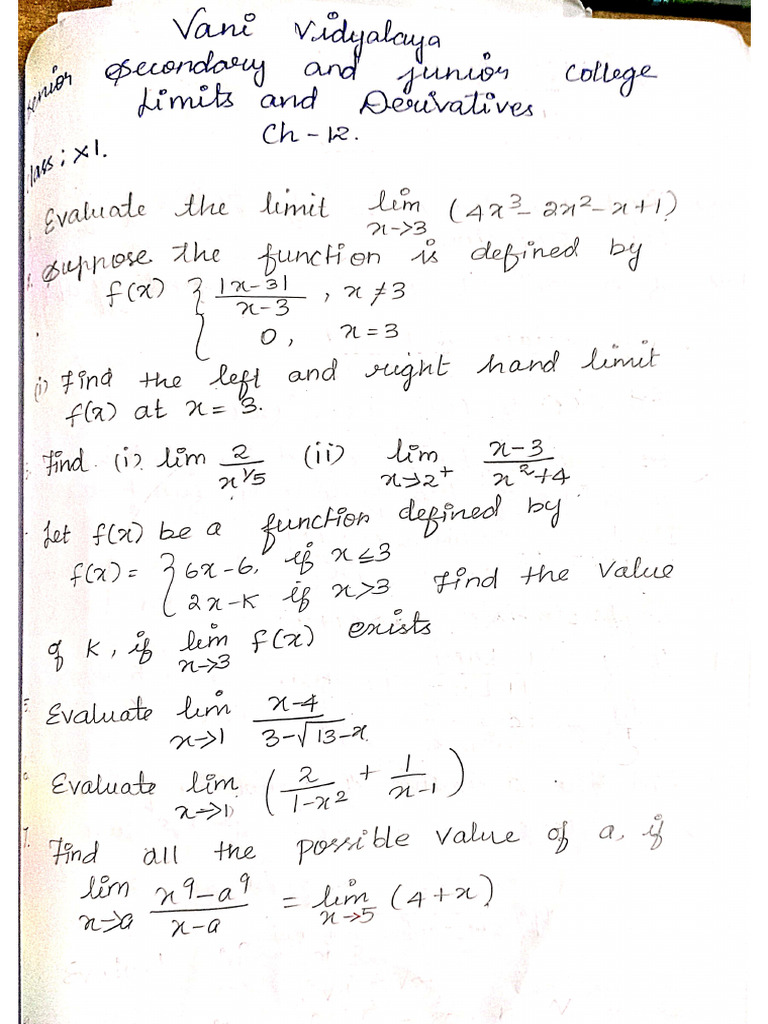 Vani Vidyalaya
senior Secondary and junior college
Limits and Derivatives
Ch-12.
class: XI.
Evaluate the limit lim x→3 (4x³- 2x²-x+1)
Suppose the function is defined by
f(x) { |x-3| / x-3 , x≠3
0, x=3
(i) Find the left and right hand limit
f(x) at x= 3.
Find (i) lim 2 / x^1/5 (ii) lim x→2⁺ x-3 / x²+4
Let f(x) be a function defined by
f(x)= { 6x-6, if x≤3
2x-k if x>3 Find the value
of k, if lim x→3 f(x) exists
5. Evaluate lim x→1 x-4 / 3-√13-x
Evaluate lim x→1 ( 2 / 1-x² + 1 / x-1 )
7. Find all the possible value of a, if
lim x→a x⁹-a⁹ / x-a = lim x→5 (4+x)